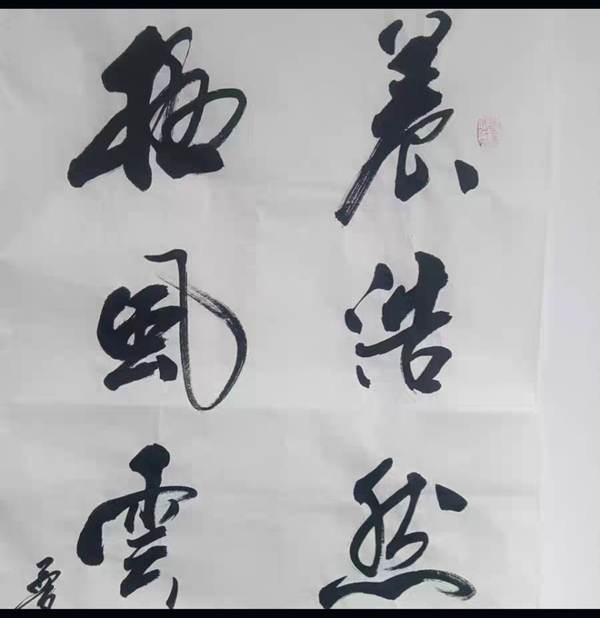 養浩然
極風雲